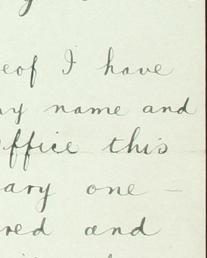 eof I have
ny name and
office this
ary one —
red and